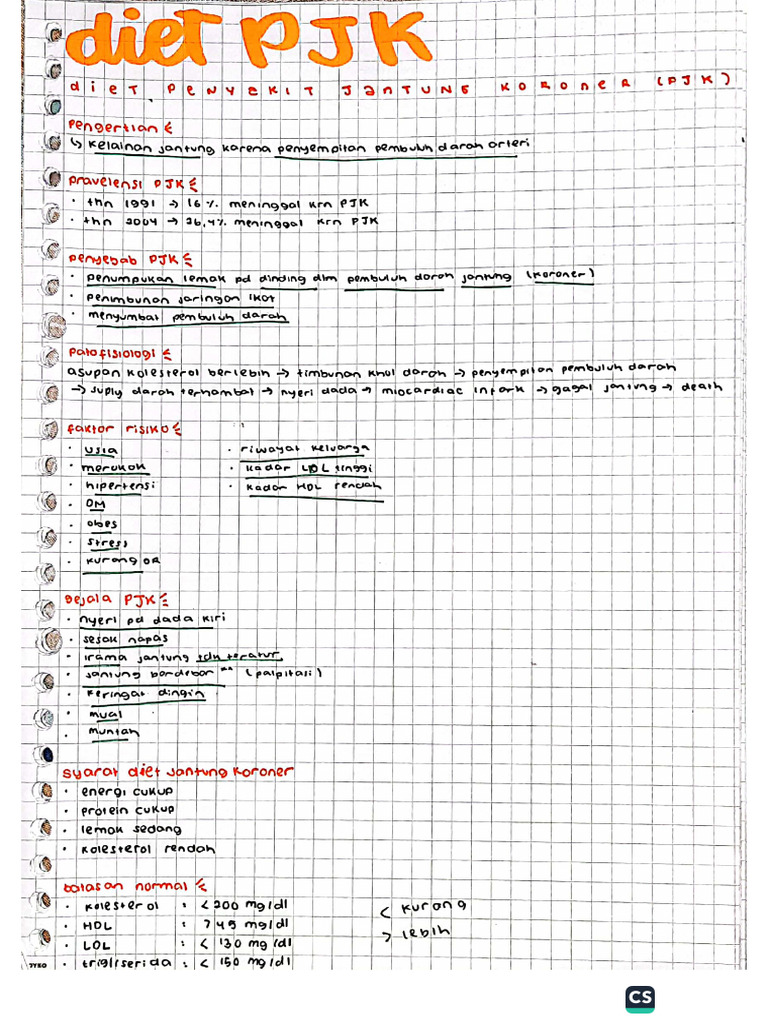 diet PJK
diet penyakit jantung koroner (PJK)
pengertian
↳ kelainan jantung karena penyempitan pembuluh darah arteri
pravelensi PJK
· thn 1991 → 16% meninggal krn PJK
· thn 2004 → 26,4% meninggal krn PJK
penyebab PJK
· penumpukan lemak pd dinding dlm pembuluh darah jantung (koroner)
· penimbunan jaringan ikat
· menyumbat pembuluh darah
patofisiologi
asupan kolesterol berlebih → timbunan khol darah → penyempitan pembuluh darah
→ suply darah terhambat → nyeri dada → miocardiac infark → gagal jantung → death
faktor risiko
· usia
· merokok
· hipertensi
· DM
· obes
· stress
· kurang OR
· riwayat keluarga
· kadar LDL tinggi
· kadar HDL rendah
gejala PJK
· nyeri pd dada kiri
· sesak napas
· irama jantung tdk teratur
· jantung berdebar" (palpitasi)
· keringat dingin
· mual
· muntah
syarat diet jantung koroner
· energi cukup
· protein cukup
· lemak sedang
· kolesterol rendah
batasan normal
· kolesterol : < 200 mg/dl
· HDL : > 45 mg/dl
· LDL : < 130 mg/dl
· trigliserida : < 150 mg/dl
< kurang
> lebih
JYKO
CS